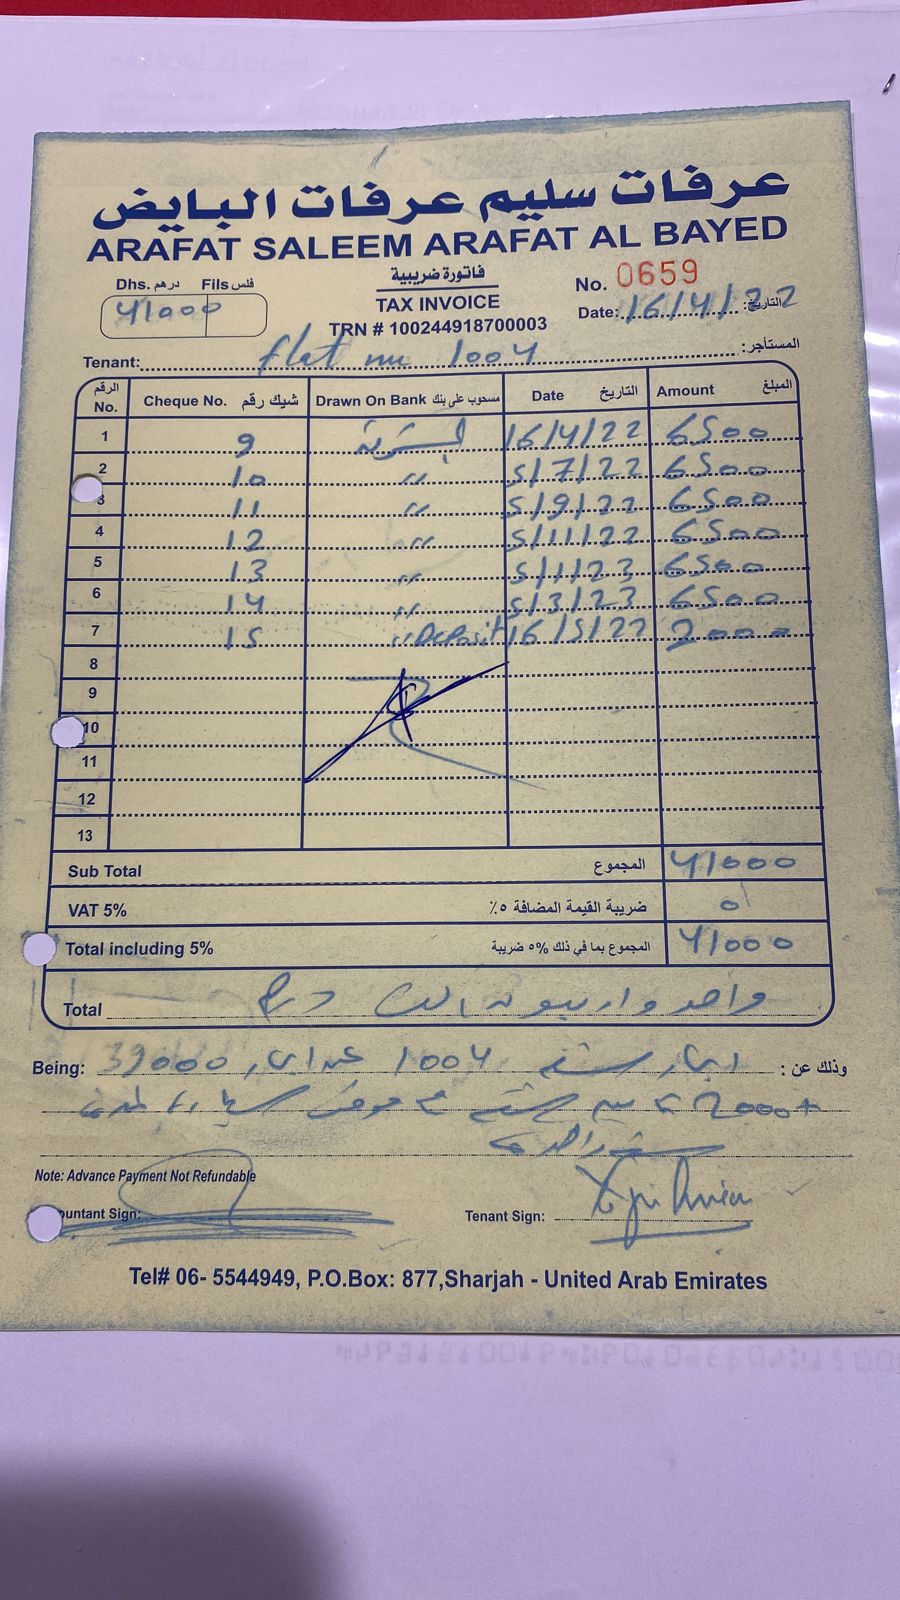 عرفات سليم عرفات البايض
ARAFAT SALEEM ARAFAT AL BAYED
Dhs. درهم Fils فلس
41000
فاتورة ضريبية
TAX INVOICE
TRN # 100244918700003
No. 0659
Date: 16/4/22 التاريخ:
Tenant: flat nu 1004 المستأجر:
الرقم No. Cheque No. شيك رقم Drawn On Bank مسحوب على بنك Date التاريخ Amount المبلغ
1 9 16/4/22 6500
2 10 " 5/7/22 6500
3 11 " 5/9/22 6500
4 12 " 5/11/22 6500
5 13 " 5/1/23 6500
6 14 " 5/3/23 6500
7 15 " Deposit 16/5/22 2000
8
9
10
11
12
13
Sub Total المجموع 41000
VAT 5% ضريبة القيمة المضافة ٥٪ 0
Total including 5% المجموع بما في ذلك ٥% ضريبة 41000
Total واحد واربعون الف درهم
Being: ايجار شقة 1004 39000 وذلك عن :
+ 2000
Note: Advance Payment Not Refundable
ountant Sign: Tenant Sign:
Tel# 06- 5544949, P.O.Box: 877,Sharjah - United Arab Emirates